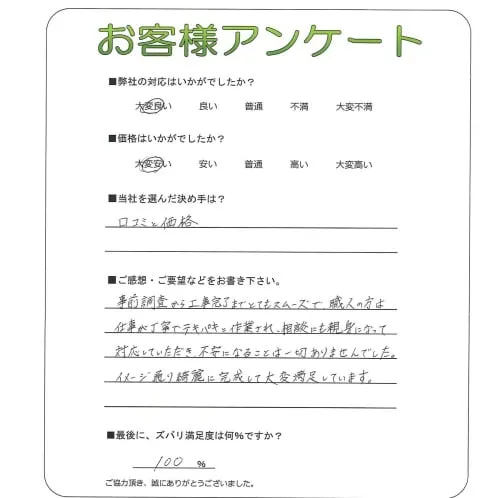 お客様アンケート
■弊社の対応はいかがでしたか?
大変良い 良い 普通 不満 大変不満
■価格はいかがでしたか?
大変安い 安い 普通 高い 大変高い
■当社を選んだ決め手は?
口コミと価格
■ご感想・ご要望などをお書き下さい。
事前調査から工事完了までとてもスムーズで、職人の方は
仕事が丁寧でテキパキと作業され、相談にも親身になって
対応していただき、不安になることは一切ありませんでした。
イメージ通り綺麗に完成して大変満足しています。
■最後に、ズバリ満足度は何%ですか?
100 %
ご協力頂き、誠にありがとうございました。